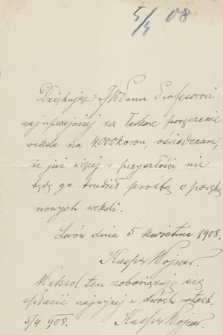 5/4 08
Dziękując JWPanu Profesorowi
najuprzejmiej za łaskawe poręczenie
weksla na 4000 koron, oświadczam,
że już więcej w przyszłości nie
będę go trudnił prośbą o
nowych weksli.
Lwów dnia 5 kwietnia 1908.
Kasper
Weksel ten zobowiązuję się
spłacić najwyżej w dwóch ratach.
5/4 908. Kasper